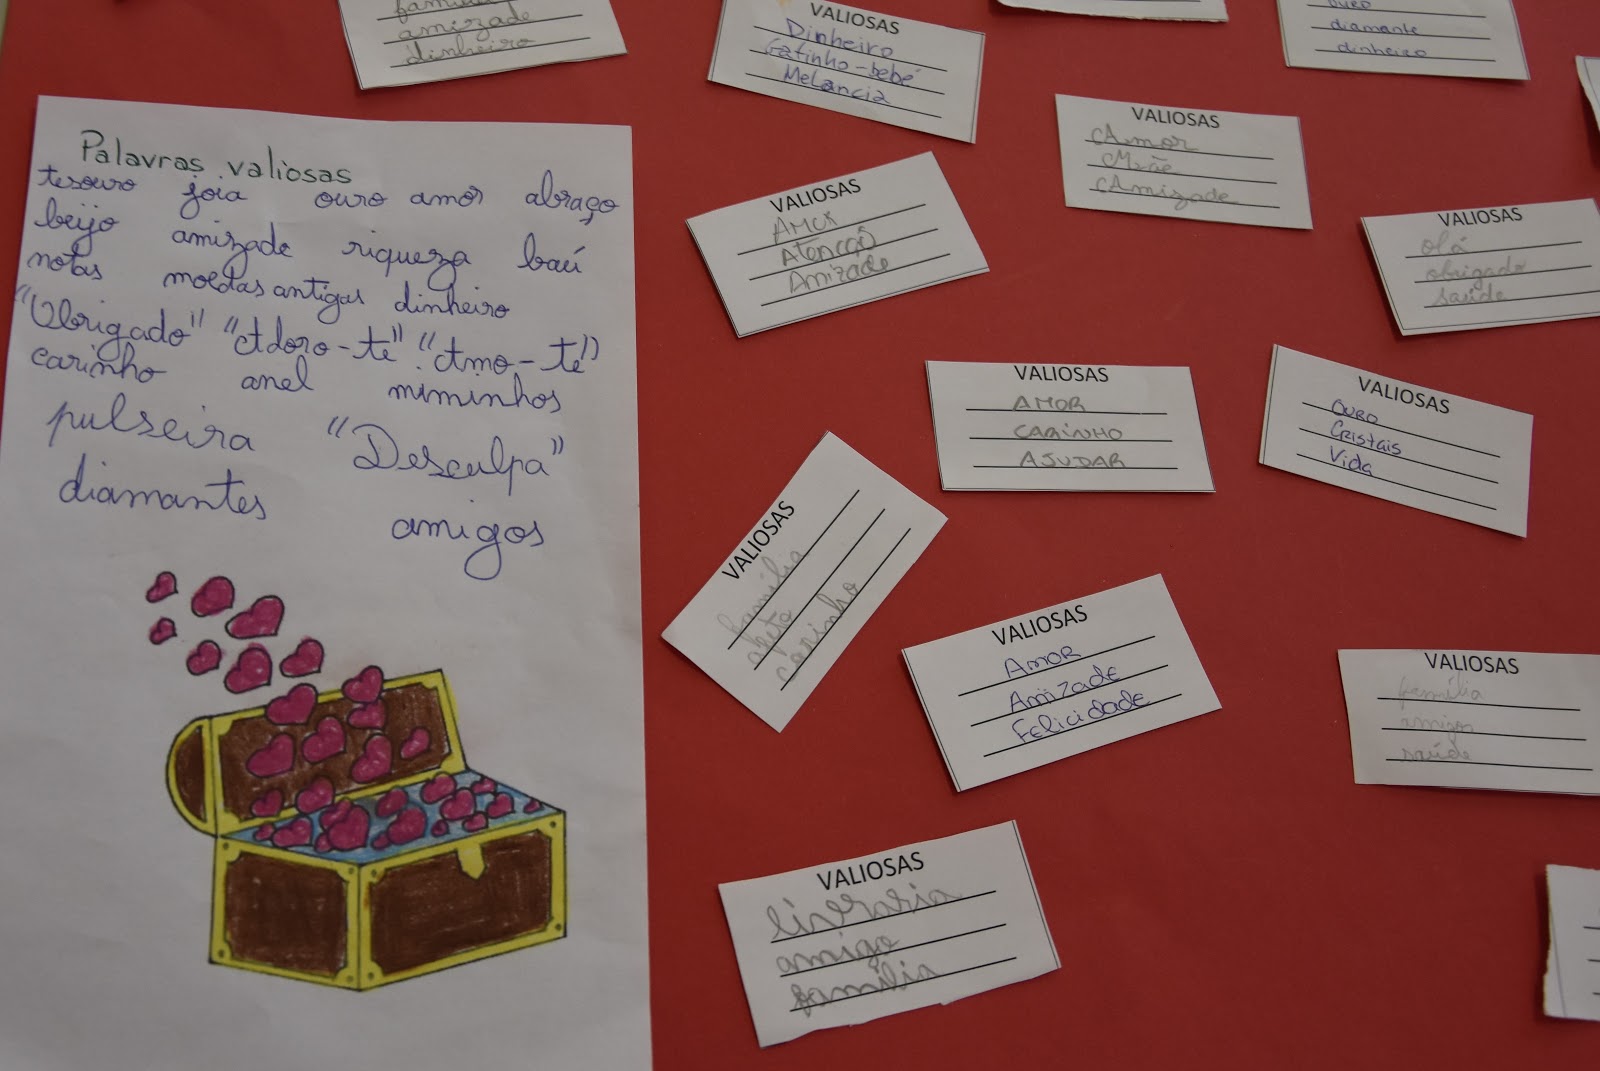 Palavras valiosas
tesouro joia ouro amor abraço
beijo amizade riqueza baú
notas moedas antigas dinheiro
"Obrigado" "Adoro-te" "Amo-te"
carinho anel miminhos
pulseira "Desculpa"
diamantes amigos
família
amizade
dinheiro
VALIOSAS
Dinheiro
Gatinho-bebé
Melancia
ouro
diamante
dinheiro
VALIOSAS
Amor
Mãe
Amizade
VALIOSAS
Amor
Atenção
Amizade
VALIOSAS
olá
obrigado
saúde
VALIOSAS
AMOR
CARINHO
AJUDAR
VALIOSAS
OURO
Cristais
Vida
VALIOSAS
família
afeto
carinho
VALIOSAS
Amor
Amizade
Felicidade
VALIOSAS
família
amigos
saúde
VALIOSAS
livraria
amigo
família